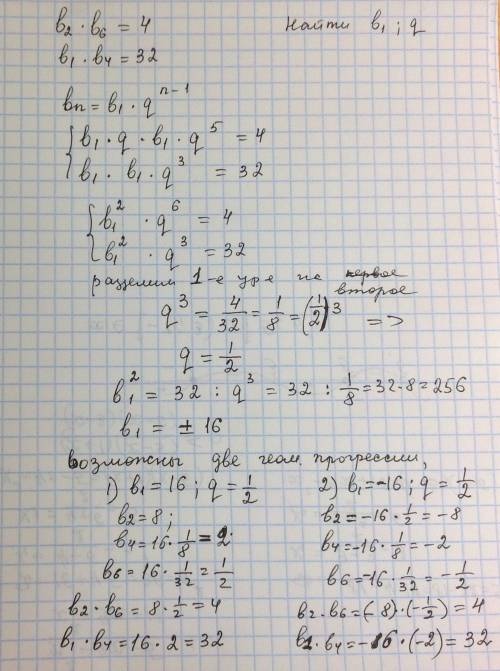 b₂ · b₆ = 4 Найти b₁ ; q
b₁ · b₄ = 32
bn = b₁ · q^(n-1)
{ b₁ · q · b₁ · q⁵ = 4
b₁ · b₁ · q³ = 32
{ b₁² · q⁶ = 4
b₁² · q³ = 32
разделим 1-е ур-е на первое
второе
q³ = 4/32 = 1/8 = (1/2)³ =>
q = 1/2
b₁² = 32 : q³ = 32 : 1/8 = 32·8 = 256
b₁ = ± 16
возможны две геом. прогрессии,
1) b₁ = 16 ; q = 1/2 2) b₁ = -16 ; q = 1/2
b₂ = 8 ; b₂ = -16 · 1/2 = -8
b₄ = 16 · 1/8 = 2 b₄ = -16 · 1/8 = -2
b₆ = 16 · 1/32 = 1/2 b₆ = -16 · 1/32 = -1/2
b₂ · b₆ = 8 · 1/2 = 4 b₂ · b₆ = (-8) · (-1/2) = 4
b₁ · b₄ = 16 · 2 = 32 b₁ · b₄ = -16 · (-2) = 32